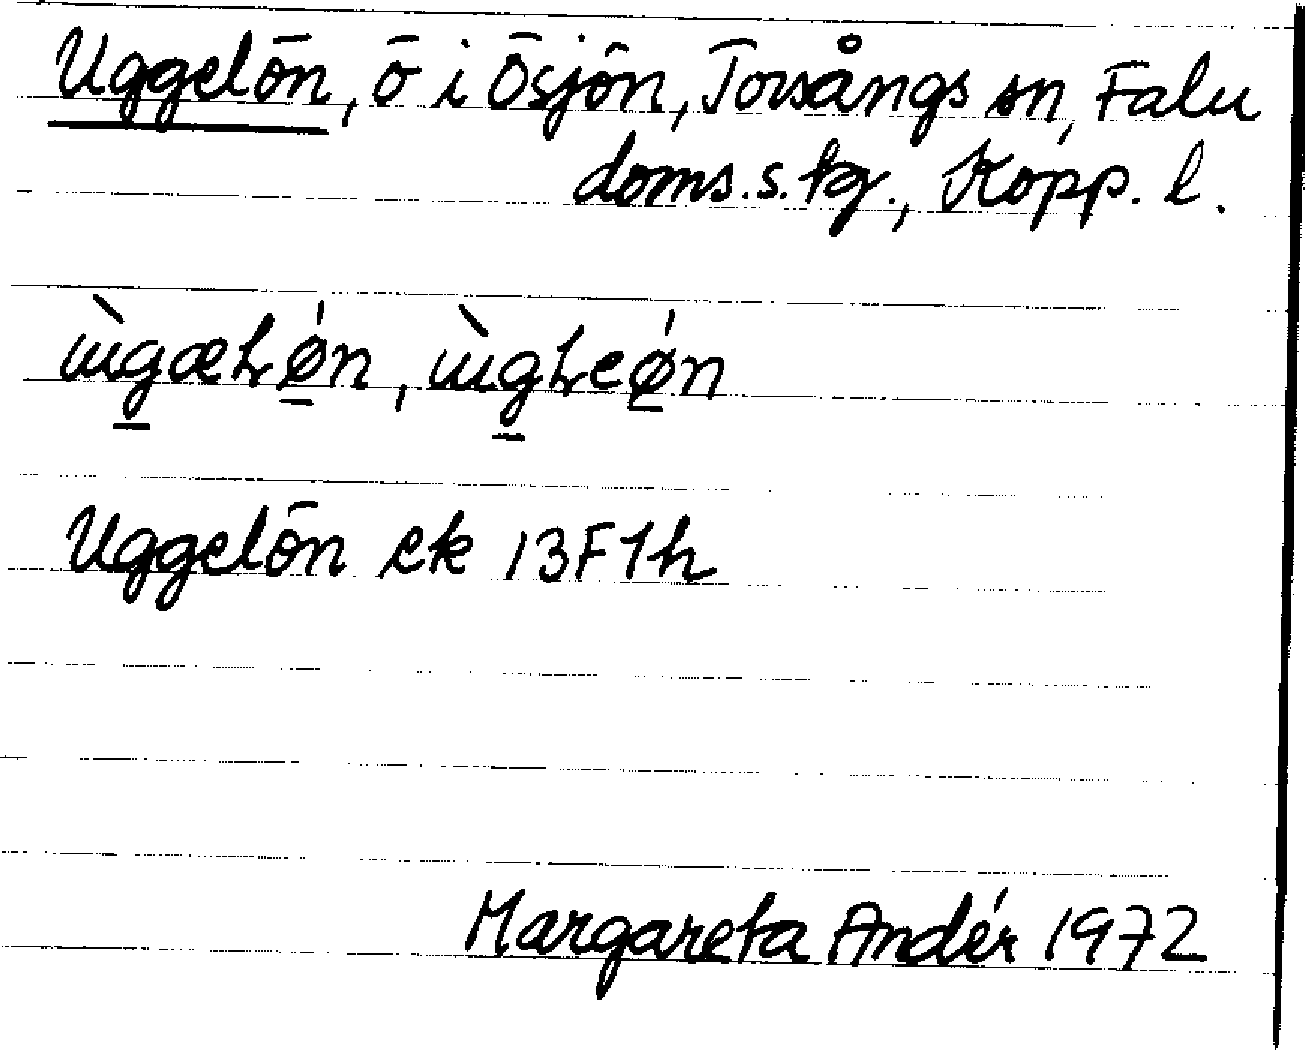 Uggelön, ö i Ösjön, Torsångs sn, Falu
doms.s. tg., Kopp. l.
ɯ̀gæłǿn, ɯ̀głeǿn
Uggelön ek 13F1h
Margareta Andér 1972